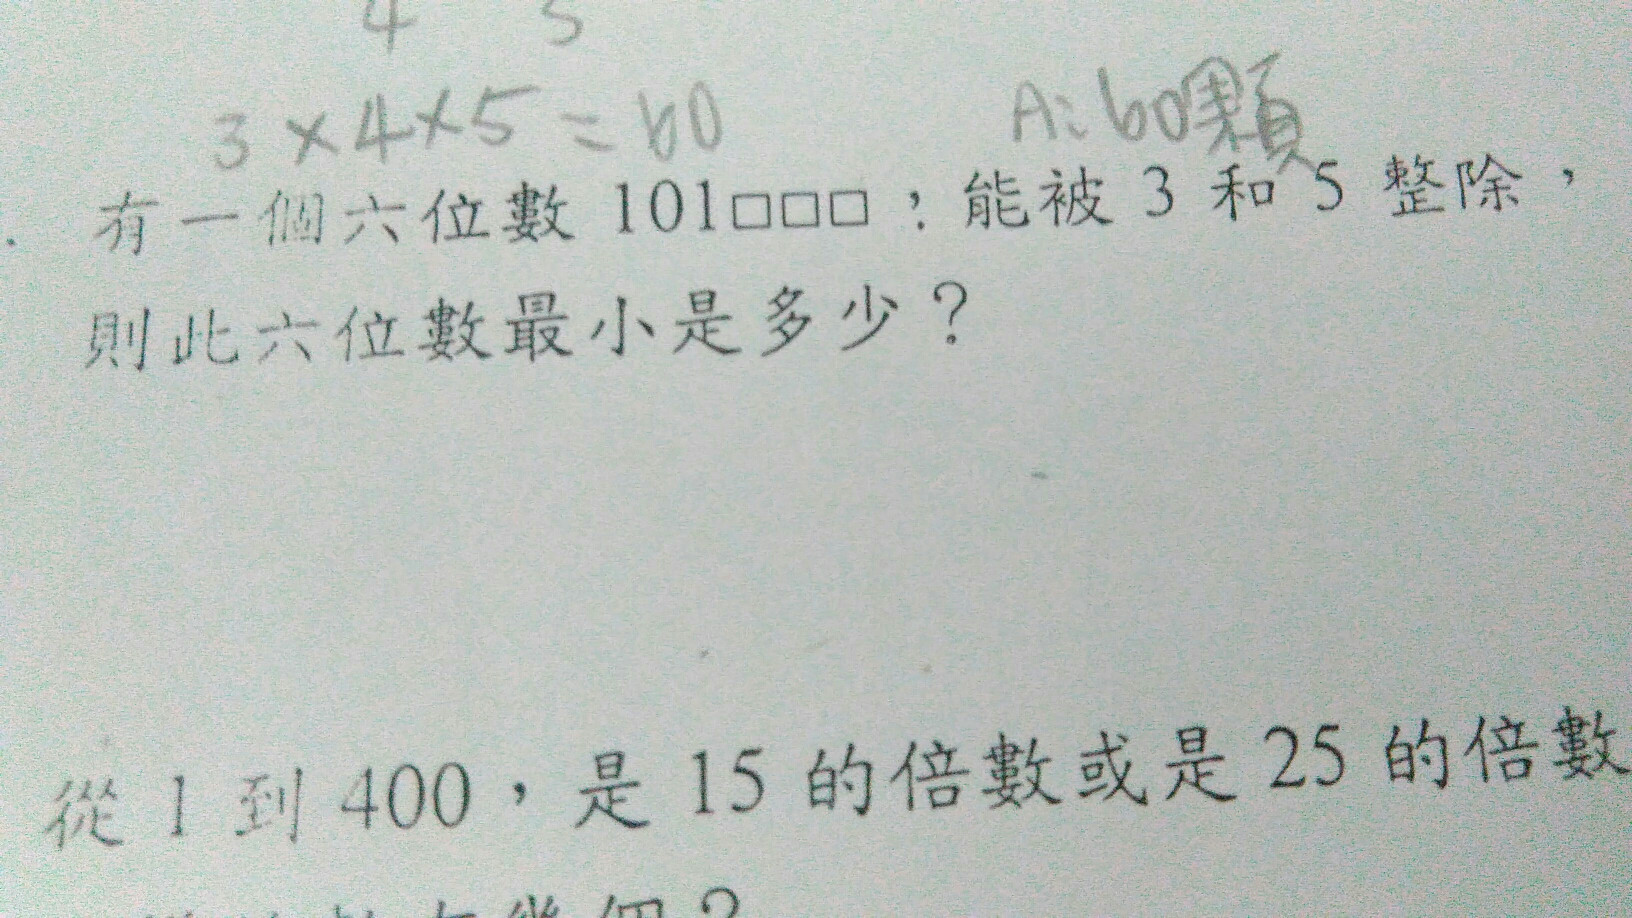 4 5
3×4×5=60 A:60顆
有一個六位數 101□□□,能被 3 和 5 整除,
則此六位數最小是多少?
從 1 到 400,是 15 的倍數或是 25 的倍數
幾個?